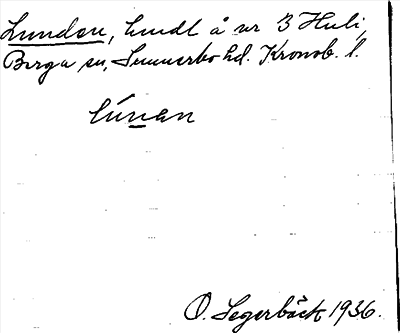 Lunden, hmdl å nr 3 Huli,
Berga sn, Sunnerbo hd. Kronob. l.
lúnan
O. Segerbäck 1936.